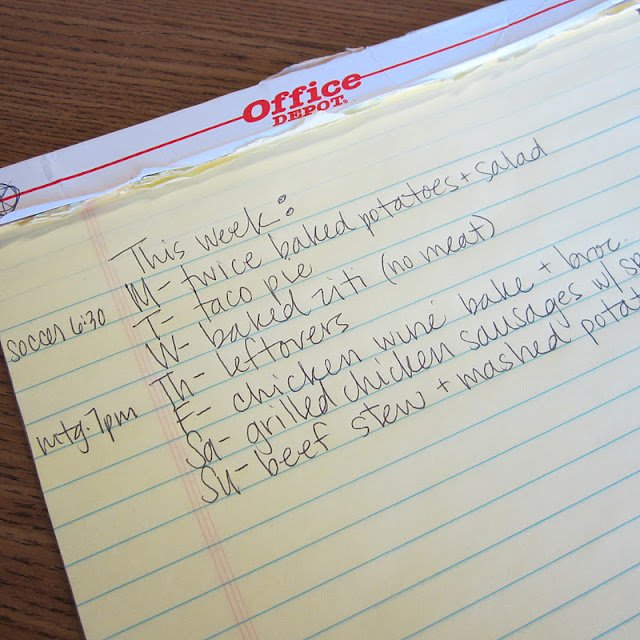 Office
DEPOT
This week:
M- twice baked potatoes + salad
soccer 6:30
T- taco pie
W- baked ziti (no meat)
Th- leftovers
mtg. 7pm
F- chicken wine bake + broc.
Sa- grilled chicken sausages w/
Su- beef stew + mashed